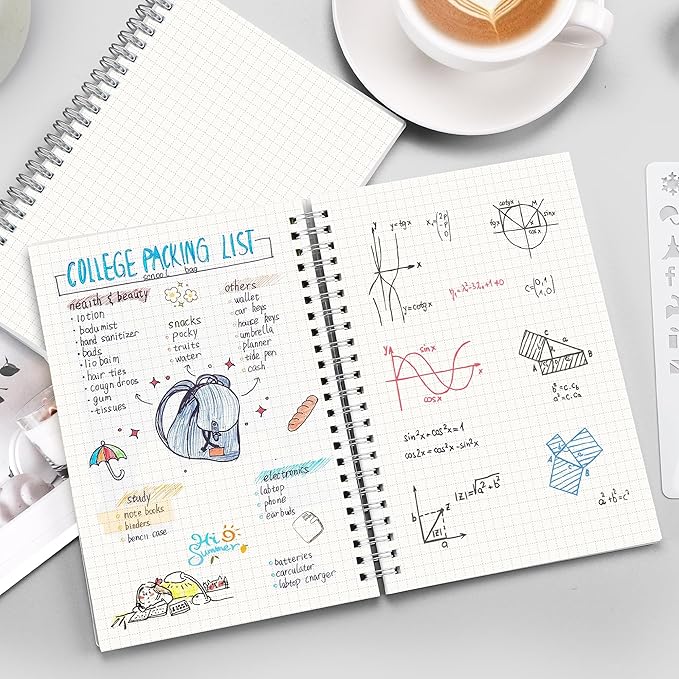 COLLEGE PACKING LIST
school bag
nealth & beauty
• iotion
• bodu mist
• hand sanitizer
• bads
• lio baim
• hair ties
• cougn droos
• gum
• tissues
snacks
• pocky
• truits
• water
others
• wallet
• car keys
• house keys
• umbrella
• planner
• tide pen
• cash
study
• note books
• binders
• bencil case
electronics
• labtop
• phone
• ear buds
Hi
Summer
• batteries
• carculator
• labtop charger
y
y=tgx
x
y=cotgx
cotgx
M
sinx
cosx
y
sinx
x
cosx
A
B
b²=c.c_b
a²=c.c_a
sin²x+cos²x=1
cos2x=cos²x-sin²x
b
z
|z|
a
|z|=√a²+b²
A
b
a
c
B
a²+b²=c²